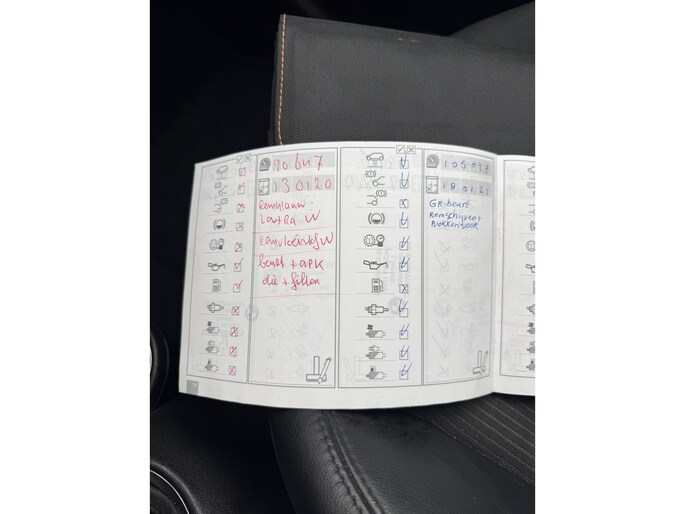 90647
130120
Remklauw:
L+RA W
beurt + APK
olie + filter
105097
180121
GR-beurt
Remschijven+
Blokken voor